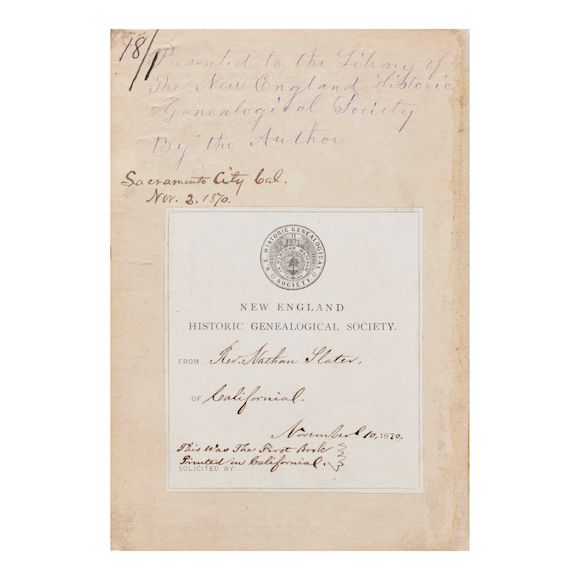 18/1
Presented to the Library of
The New England Historic
Genealogical Society
By the Author
Sacramento City Cal.
Nov. 2. 1870.
N. E. HISTORIC GENEALOGICAL SOCIETY
NEW ENGLAND
HISTORIC GENEALOGICAL SOCIETY.
FROM Rev. Nathan Slater.
OF California.
November 10, 1870.
This Was The First Book
Printed in California.
SOLICITED BY